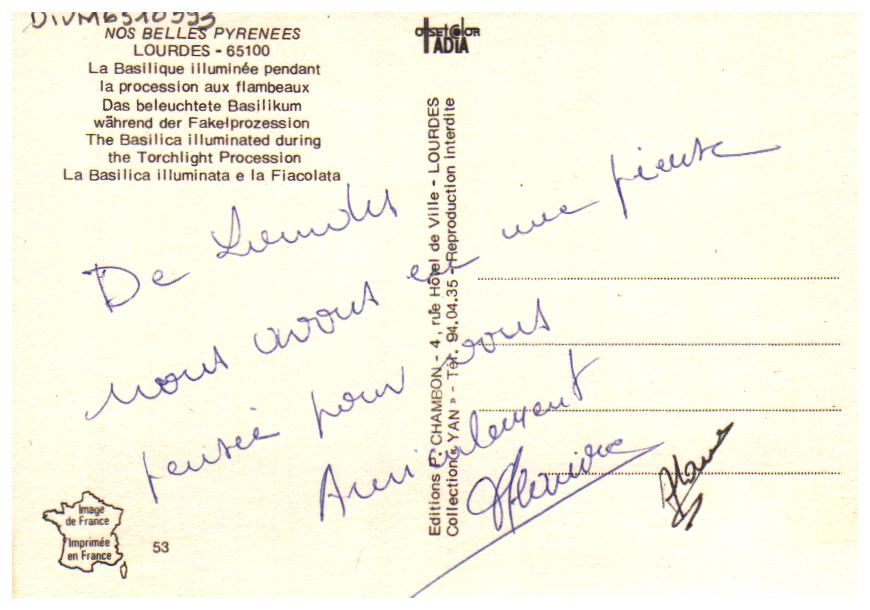 NOS BELLES PYRENEES
LOURDES - 65100
La Basilique illuminée pendant
la procession aux flambeaux
Das beleuchtete Basilikum
während der Fakelprozession
The Basilica illuminated during
the Torchlight Procession
La Basilica illuminata e la Fiacolata
OffsetColor
ADIA
Editions P. CHAMBON - 4, rue Hôtel de Ville - LOURDES
Collection « YAN » - Tél. 94.04.35 - Reproduction interdite
De Lourdes
nous avons eu une pieuse
pensée pour vous
Amicalement
Image
de France
Imprimée
en France
53